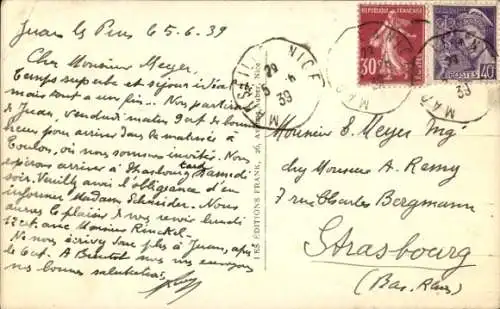 Juan les Pins le 5.6.39
Cher Monsieur Meyer.
Temps superbe et séjour idéal
mais tout a une fin... Nous partirons
de Juan, vendredi matin 9 crt de bonne
heure pour arriver dans la matinée à
Toulon, où nous sommes invités. Nous
espérons arriver à Strasbourg samedi
tard
soir. Veuillez avoir l'obligeance d'en
informer Madame Schneider. Nous
aurons le plaisir de vous revoir lundi
12 crt. avec Monsieur
Ne nous écrivez donc plus à Juan, après
le 6 crt. A Bientôt nous vous envoyons
nos bonnes salutations
LES ÉDITIONS FRANK, 26, Nice
REPUBLIQUE FRANÇAISE
30c
POSTES 40c
NICE
MARSEILLE
5 -6
39
Monsieur S. Meyer Ing.
chez Monsieur A. Remy
7 rue Charles Bergmann
Strasbourg
(Bas-Rhin)